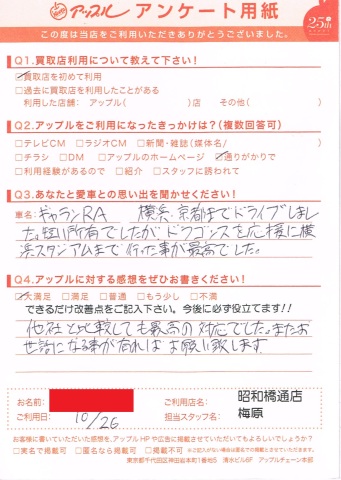 アップル アンケート用紙
25th
この度は当店をご利用いただきありがとうございました。
Q1.買取店利用について教えて下さい!
☑買取店を初めて利用
□過去に買取店を利用したことがある
利用した店舗: アップル( )店 その他( )
Q2.アップルをご利用になったきっかけは?(複数回答可)
□テレビCM □ラジオCM □新聞・雑誌(媒体名/ )
□チラシ □DM □アップルのホームページ ☑通りがかりで
□利用経験があるので □紹介 □スタッフに誘われて
Q3.あなたと愛車との思い出を聞かせください!
車名:ギャランRA 横浜、京都までドライブしまし
た。短い所有でしたがドラゴンズを応援に横
浜スタジアムまで行った事が最高でした。
Q4.アップルに対する感想をぜひお書きください!
☑大満足 □満足 □普通 □もう少し □不満
できるだけ改善点をご記入下さい。今後に必ず役立てます!!
他社と比較しても最高の対応でした。またお
世話になる事が有ればお願い致します。
お名前: ご利用店名: 昭和橋通店
ご利用日: 10/26 担当スタッフ名: 梅原
お客様に書いていただいた感想を、アップルHPや広告に掲載させていただいてもよろしいでしょうか?
□実名で掲載可 □匿名なら掲載可 □掲載不可 ※ご記入がない場合は匿名での掲載とさせていただきます。
東京都千代田区神田岩本町1番地5 清水ビル6F アップルチェーン本部